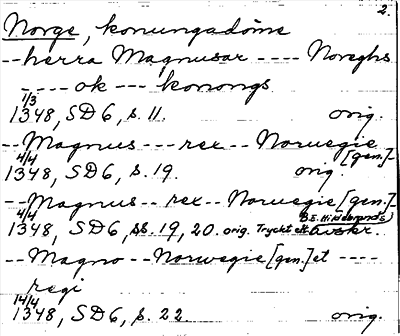 2.
Norge, konungadöme
-- herra Magnusar ---- Noreghs
---- ok --- konongs
1/3
1348, SD6, s. 11. orig.
-- Magnus --- rex -- Norwegie [gen.] -
4/4
1348, SD6, s. 19. orig.
-- Magnus -- rex -- Norwegie [gen.] -
4/4
1348, SD6, ss. 19, 20. orig. Tryckt eft. B.E. Hildebrands avskr.
-- Magno -- Norwegie [gen.] et ----
regi
14/4
1348, SD6, s. 22. orig.